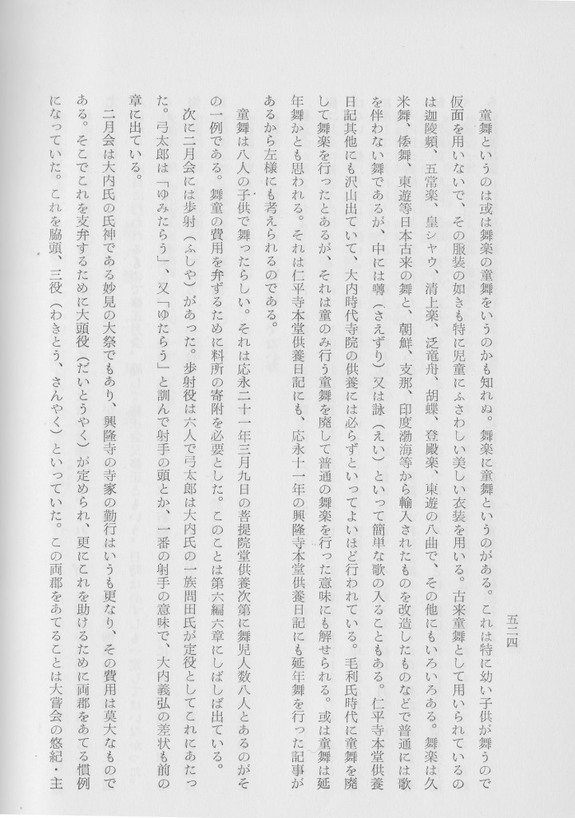 五二四
童舞というのは或は舞楽の童舞をいうのかも知れぬ。舞楽に童舞というのがある。これは特に幼い子供が舞うので
仮面を用いないで、その服装の如きも特に児童にふさわしい美しい衣装を用いる。古来童舞として用いられているの
は迦陵頻、五常楽、皇シャウ、清上楽、泛竜舟、胡蝶、登殿楽、東遊の八曲で、その他にもいろいろある。舞楽は久
米舞、倭舞、東遊等日本古来の舞と、朝鮮、支那、印度渤海等から輸入されたものを改造したものなどで普通には歌
を伴わない舞であるが、中には囀（さえずり）又は詠（えい）といって簡単な歌の入ることもある。仁平寺本堂供養
日記其他にも沢山出ていて、大内時代寺院の供養には必らずといってよいほど行われている。毛利氏時代に童舞を廃
して舞楽を行ったとあるが、それは童のみ行う童舞を廃して普通の舞楽を行った意味にも解せられる。或は童舞は延
年舞かとも思われる。それは仁平寺本堂供養日記にも、応永十一年の興隆寺本堂供養日記にも延年舞を行った記事が
あるから左様にも考えられるのである。
童舞は八人の子供で舞ったらしい。それは応永二十一年三月九日の菩提院堂供養次第に舞児人数八人とあるのがそ
の一例である。舞童の費用を弁ずるために料所の寄附を必要とした。このことは第六編六章にしばしば出ている。
次に二月会には歩射（ふしや）があった。歩射役は六人で弓太郎は大内氏の一族問田氏が定役としてこれにあたっ
た。弓太郎は「ゆみたらう」、又「ゆたらう」と訓んで射手の頭とか、一番の射手の意味で、大内義弘の差状も前の
章に出ている。
二月会は大内氏の氏神である妙見の大祭でもあり、興隆寺の寺家の勤行はいうも更なり、その費用は莫大なもので
ある。そこでこれを支弁するために大頭役（だいとうやく）が定められ、更にこれを助けるために両郡をあてる慣例
になっていた。これを脇頭、三役（わきとう、さんやく）といっていた。この両郡をあてることは大嘗会の悠紀・主